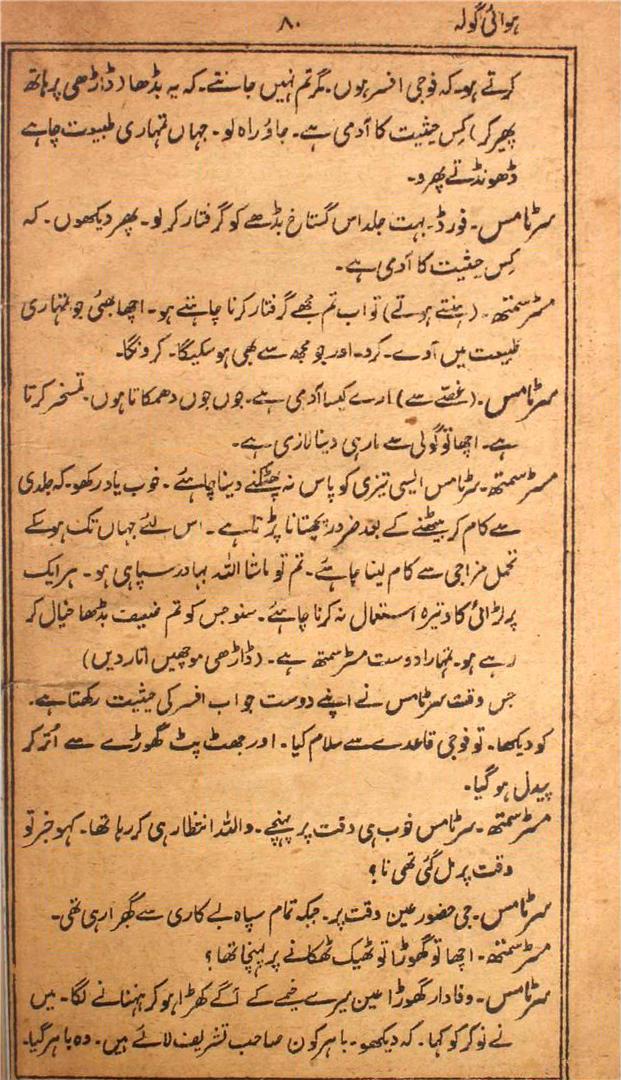 ہوائی گولہ
۸۰
کرتے ہو۔ کہ فوجی افسر ہوں۔ مگر تم نہیں جانتے۔ کہ یہ بڈھا (ڈاڑھی پر ہاتھ
پھیر کر) کِس حیثیت کا آدمی ہے۔ جاؤ راہ لو۔ جہاں تمہاری طبیعت چاہے
ڈھونڈتے پھرو۔
سرٹامس۔ فورڈ۔ بہت جلد اس گستاخ بڈھے کو گرفتار کر لو۔ پھر دیکھوں۔ کہ
کِس حیثیت کا آدمی ہے۔
مسٹر سمتھ۔ (ہنستے ہوئے) تو اب تم مجھے گرفتار کرنا چاہتے ہو۔ اچھا بھئی جو تمہاری
طبیعت میں آوے۔ کرو۔ اور جو مجھ سے بھی ہو سکیگا۔ کرونگا۔
سرٹامس۔ (غصّے سے) ارے کیسا آدمی ہے۔ جوں جوں دھمکاتا ہوں۔ تمسخر کرتا
ہے۔ اچھا تو گولی سے مار ہی دینا لازمی ہے۔
مسٹر سمتھ۔ سرٹامس ایسی تیزی کو پاس نہ پھٹکنے دینا چاہئے۔ خوب یاد رکھو۔ کہ جلدی
سے کام کر بیٹھنے کے بعد ضرور پچھتانا پڑتا ہے۔ اس لئے جہاں تک ہو سکے
تحمل مزاجی سے کام لینا چاہئے۔ تم تو ماشا اللہ بہادر سپاہی ہو۔ ہر ایک
پر لڑائی کا وتیرہ استعمال نہ کرنا چاہئے۔ سنو جس کو تم ضعیف بڈھا خیال کر
رہے ہو۔ تمہارا دوست مسٹر سمتھ ہے۔ (ڈاڑھی موچھیں اتار دیں)
جس وقت سرٹامس نے اپنے دوست جو اب افسر کی حیثیت رکھتا ہے۔
کو دیکھا۔ تو فوجی قاعدے سے سلام کیا۔ اور جھٹ پٹ گھوڑے سے اُتر کر
پیدل ہو گیا۔
مسٹر سمتھ۔ سرٹامس خوب ہی وقت پر پہنچے۔ واللہ انتظار ہی کر رہا تھا۔ کہو خبر تو
وقت پر مل گئی تھی نا؟
سرٹامس۔ جی حضور عین وقت پر۔ جبکہ تمام سپاہ بے کاری سے گھبرا رہی تھی۔
مسٹر سمتھ۔ اچھا تو گھوڑا تو ٹھیک ٹھکانے پر پہنچا تھا؟
سرٹامس۔ وفادار گھوڑا عین میرے خیمے کے آگے کھڑا ہو کر ہنہنانے لگا۔ میں
نے نوکر کو کہا۔ کہ دیکھو۔ باہر کون صاحب تشریف لائے ہیں۔ وہ باہر گیا۔